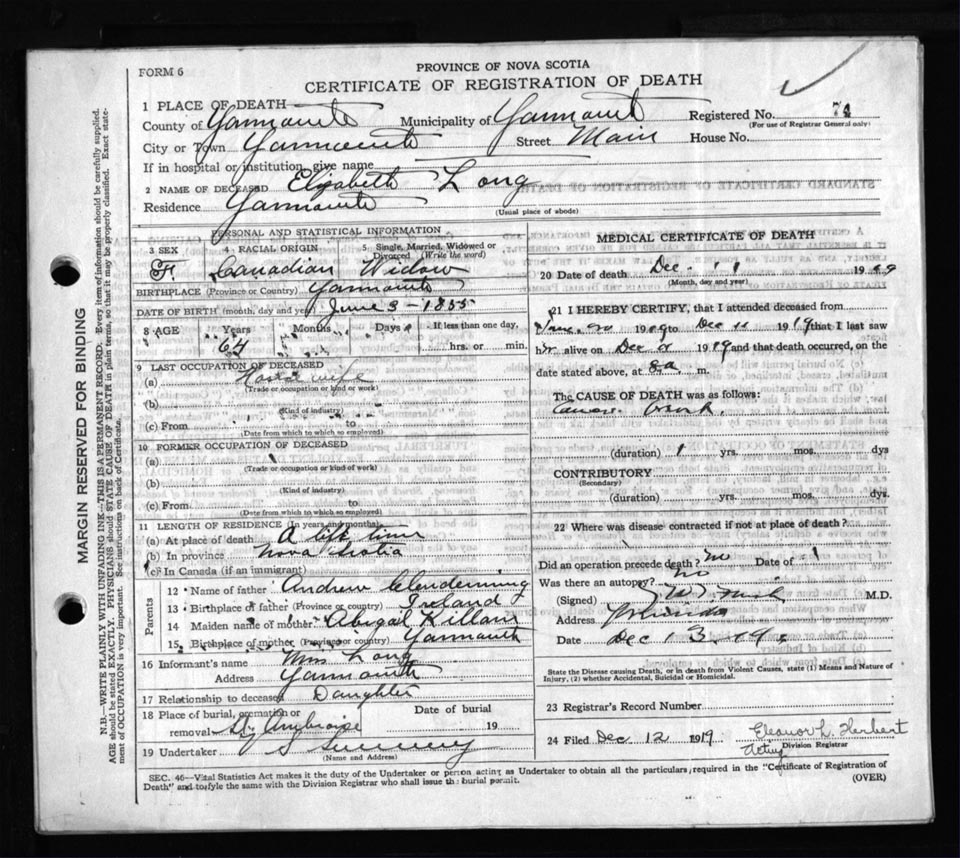 PROVINCE OF NOVA SCOTIA
FORM 6
CERTIFICATE OF REGISTRATION OF DEATH
1 PLACE OF DEATH
County of Yarmouth Municipality of Yarmouth Registered No. 74
(For use of Registrar General only)
City or Town Yarmouth Street Main House No.
If in hospital or institution, give name
2 NAME OF DECEASED Elizabeth Long
Residence Yarmouth
(Usual place of abode)
PERSONAL AND STATISTICAL INFORMATION
3 SEX 4 RACIAL ORIGIN 5 Single, Married, Widowed or Divorced (Write the word)
F. Canadian Widow
BIRTHPLACE (Province or Country) Yarmouth
DATE OF BIRTH (month, day and year) June 3 - 1855
8 AGE Years Months Days If less than one day,
64 hrs. or min.
9 LAST OCCUPATION OF DECEASED
(a) House wife
(Trade or occupation or kind of work)
(b)
(Kind of industry)
(c) From to
(Date from which to which so employed)
10 FORMER OCCUPATION OF DECEASED
(a)
(Trade or occupation or kind of work)
(b)
(Kind of industry)
(c) From to
(Date from which to which so employed)
11 LENGTH OF RESIDENCE (In years and months)
(a) At place of death A life time
(b) In province Nova Scotia
(c) In Canada (if an immigrant)
Parents
12 Name of father Andrew Clendenning
13 Birthplace of father (Province or country) Ireland
14 Maiden name of mother Abigal Killam
15 Birthplace of mother (Province or country) Yarmouth
16 Informant's name Long
Address Yarmouth
17 Relationship to deceased Daughter
18 Place of burial, cremation or removal St. Ambroise Date of burial 19
19 Undertaker V S Sweeney
(Name and Address)
MEDICAL CERTIFICATE OF DEATH
20 Date of death Dec. 11 19
(Month, day and year)
21 I HEREBY CERTIFY, that I attended deceased from
1919 to Dec 11 1919 that I last saw
her alive on Dec 1919 and that death occurred, on the
date stated above, at 8 a m.
The CAUSE OF DEATH was as follows:
(duration) 1 yrs. mos. dys
CONTRIBUTORY
(Secondary)
(duration) yrs. mos. dys.
22 Where was disease contracted if not at place of death?
Did an operation precede death? no Date of
Was there an autopsy? no
(Signed) M.D.
Address
Date Dec 13
State the Disease causing Death, or in death from Violent Causes, state (1) Means and Nature of
Injury, (2) whether Accidental, Suicidal or Homicidal.
23 Registrar's Record Number
24 Filed Dec 12 1919 Eleanor L. Herbert
Acting Division Registrar
SEC. 46—Vital Statistics Act makes it the duty of the Undertaker or person acting as Undertaker to obtain all the particulars required in the "Certificate of Registration of
Death" and to file the same with the Division Registrar who shall issue the burial permit. (OVER)
MARGIN RESERVED FOR BINDING
N.B.—WRITE PLAINLY WITH UNFADING INK—THIS IS A PERMANENT RECORD. Every item of information should be carefully supplied.
AGE should be stated EXACTLY. PHYSICIANS should STATE CAUSE OF DEATH in plain terms, so that it may be properly classified. Exact state-
ment of OCCUPATION is very important. See instructions on back of Certificate.